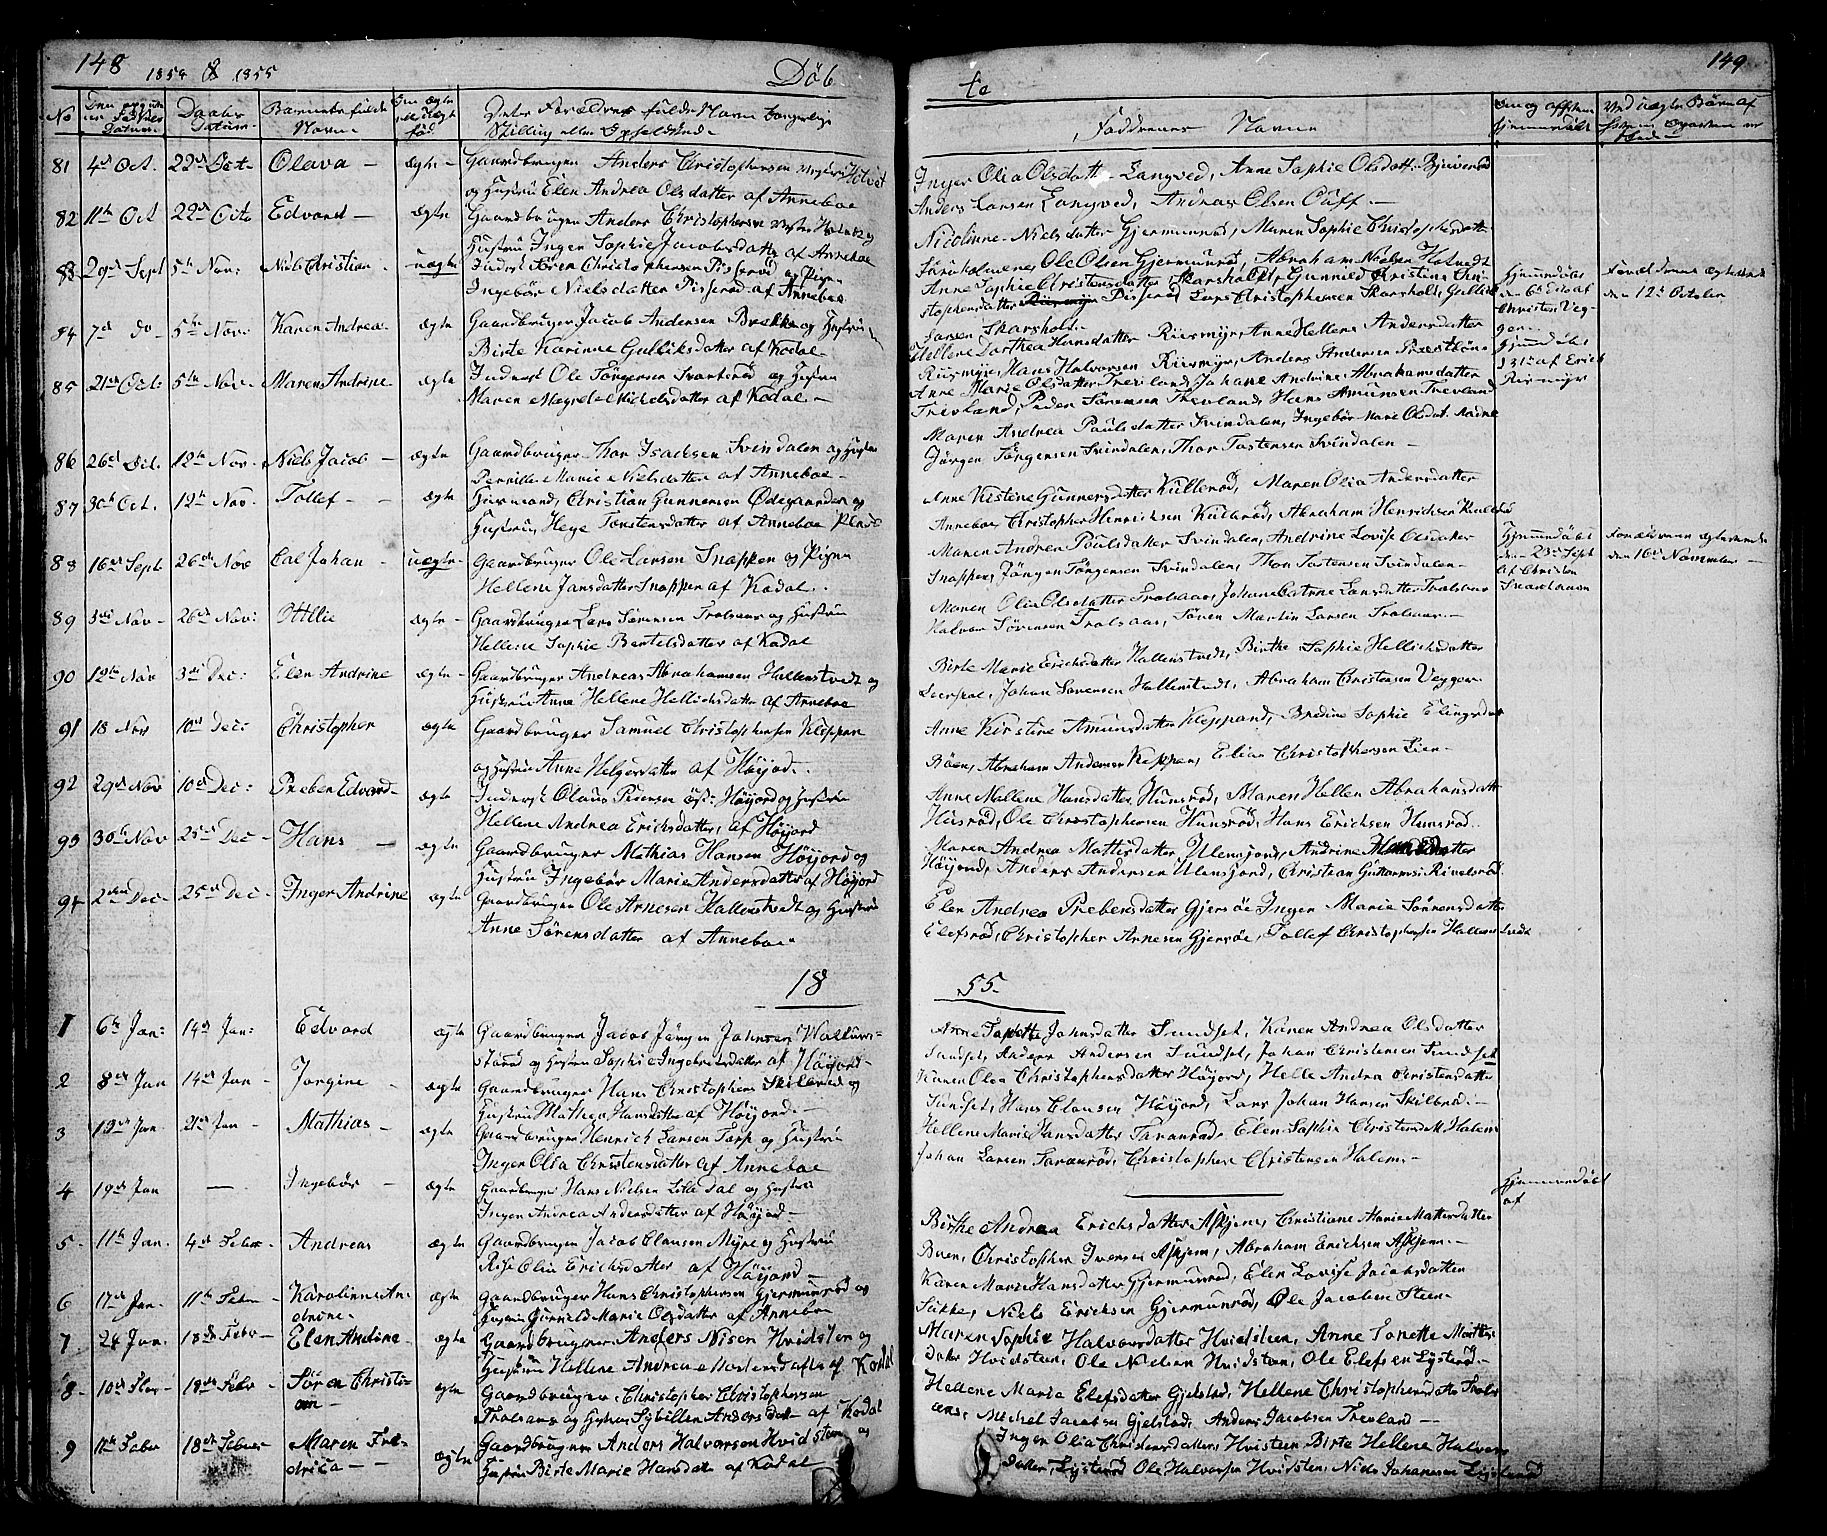 148 1854 & 1855 Döb
No Daabs Datum Barnets fulde Navn
81 4de Oct. 22de Oct. Olava — ægte — Gaardbruger Anders Christophersen Holvet
og Hustru Elen Andrea Olsdatter af Anneboe
82 11te Oct 22de Octo Edvard — ægte Gaardbruger Anders Christophersen
Hustru Inger Sophie Jacobsdatter af Anneboe
83 29de Sept 5te Nov: Niels Christian uægte Inderst Sören Christophersen Pisserød og Pigen
Ingebör Nielsdatter Pisserød af Anneboe
84 7de do — 5te Nov: Karen Andrea ægte Gaardbruger Jacob Andersen Brekke og Hustru
Birte Karinne Gulliksdatter af Kodal —
85 21de Oct: 5te Nov — Maren Andrine ægte Inderst Ole Jörgensen Svarterød og Hustru
Maren Magrete Michelsdatter af Kodal —
86 26de Oct. 12te Nov. Niels Jacob — ægte Gaardbruger Thor Isacksen Svindalen og Hustru
Pernille Marie Nielsdatter af Anneboe —
87 30te Oct. 12te Nov. Tollef — ægte Husmand, Christian Gunnersen Ødegaarden og
Hustru Hege Torstensdatter af Anneboe
88 16de Sept 26de Nov Carl Johan — uægte — Gaardbruger Ole Larsen Snappen og Pigen
Hellene Jansdatter Snappen af Kodal.
89 3die Nov — 26de Nov: Ottilie ægte — Gaardbruger Lars Sörensen Trolsaas og Hustru
Hellene Sophie Bertelsdatter af Kodal
90 12te Nov 3die Dec: Elen Andrine ægte — Gaardbruger Andreas Abrahamsen Hallenstvedt og
Hustru Anne Hellene Hellichsdatter af Anneboe
91 18 Nov 10de Dec: Christopher ægte Gaardbruger Samuel Christophersen Kleppan
og Hustru Anne Helgesdatter af Höijord.
92 29de Nov 10de Dec: Preben Edvard — ægte Inderst Olaus Pedersen Höijord og Hustru
Hellene Andrea Ericksdatter, af Höijord
93 30te Nov 25de Dec — Hans — ægte Gaardbruger Mathias Hansen Höijord og
Hustru Ingebör Marie Andersdatter af Höijord
94 2den Dec — 25de Dec — Inger Andrine ægte Gaardbruger Ole Arnesen Hallenstvedt og Hustru
Anne Sörensdatter af Anneboe
18
1 6te Jan: 14de Jan: Edvard ægte Gaardbruger Jacob Jörgen Johnsen Wallum-
störød og Hustru Sophie Ingebretsdatter af Höijord —
2 8de Jan 14de Jan — Jorgine — ægte Gaardbruger Hans Christophersen Skilbred og
Hustru Mathea Hansdatter af Höijord. —
3 12te Jan 21de Jan — Mathias — ægte Gaardbruger Henrich Larsen Torp og Hustru
Inger Olia Christensdatter af Anneboe
4 19de Jan — Ingebör — ægte Gaardbruger Hans Nielsen Lille Dal og Hustru
Inger Andrea Andersdatter af Höijord —
5 — 11te Jan. 4de Febr — Andreas ægte Gaardbruger Jacob Clausen Myre og Hustru
Olia Ericksdatter af Höijord —
6 17de Jan. 11te Febr — Karolinne An-
drine — ægte Gaardbruger Hans Christophersen Gjermunrød og
Hustru Gunnild Marie Olsdatter af Anneboe
7 24 Jan. 18de Febr — Elen Andine — ægte Gaardbruger Anders Nilsen Hvidsten og
Hustru Hellene Andrea Mortensdatter af Kodal
8 — 10de 18de Febr Sören Christi-
an — ægte Gaardbruger, Christopher Christophersen
Trolsaas og Hustru Sybille Andersdat — af Kodal
9 11te Febr 18de Febr Maren Fre-
drica — ægte Gaardbruger Anders Halvorsen Hvidsten og
Hustru Birte Marie Hansdatt af Kodal
te 149
Faddrenes Navne
Inger Olia Olsdatt Langved, Anne Sophie Olsdatt Bjuerød
Anders Larsen Langved, Andreas Olsen —
Nicolinne Nielsdatter Gjermunrød, Maren Sophie Christophersdatt
Ole Olsen Gjermunrød, Abraham Nielsen Holvedt
Anne Sophie Christensdatter Skarsholt, Gunnild Kristine Chri-
stophersdatter Pisserød Lars Christophersen Skarsholt, Gullik
Larsen Skarsholt. Hjemmedöbt den 6te Octo af Christen Veg-
ger Forældrene ægteviede den 12te October
Hellene Dorthea Hansdatter Riismyr, Anne Hellene Andersdatter
Riismyr, Hans Halvorsen Riismyr, Anders Andersen Præstbön Hjemmedöbt af Erick Riismyr
Anne Marie Olsdatter Trevland, Johane Andrine Abrahamsdatter
Trevland, Peder Sörensen Trevland, Hans Amundsen Trevland
Maren Andrea Paulsdatter Svindalen, Ingebör Marie Olsdat.
Jörgen Jörgensen Svindalen, Thor Tostensen Svindalen —
Anne Kistene Gunnersdatter Kullerød, Maren Olia Andersdatter
Anneboe, Christopher Henricksen Kullerød, Abraham Henrichsen
Maren Andrea Paulsdatter Svindalen, Andrine Lovise Olsdatter
Snappen, Jörgen Jörgensen Svindalen, Thor Tostensen Svindalen — Hjemmedöbt den 23de Sept af Christen Forældrene ægteviede den 16de November
Maren Olia Olsdatter Trolsaas, Johane Catrine Larsdatter Trolsaas
Halvor Sörensen Trolsaas, Sören Martin Larsen Trolsaas —
Birte Marie Ericksdatter Hallenstvedt, Birthe Sophie Hellichsdatter
Leerskal, Johan Sörensen Hallenstvedt, Abraham Christensen Vegger
Anne Kirstine Amundsdatter Kleppan, Bredine Sophie Elingsdat
Röen, Abraham Andersen Kleppan, Elias Christophersen Lien —
Anne Mallene Hansdatter Hunsrød, Maren Hellen Abrahamsdatt
Hunsrød, Ole Christophersen Hunsrød, Hans Ericksen Hunsrød.
Maren Andrea Mathisdatter, Ulensjord, Andrine
Höijord, Anders Andersen Ulensjord, Christian Guttormsen
Elen Andrea Prebensdatter Gjersöe, Inger Marie Sörensdatter
Elefsrød, Christopher Arnesen Gjersöe, Tollef Christophersen Hallenstvedt
55.
Anne Johnsdatter Sundset, Karen Andrea Olsdatter
Sundset, Anders Andersen Sundset, Johan Christensen Sundset
Karen Olea Christophersdatter Höijord, Helle Andrea Christensdatter
Sundset, Hans Clausen Höijord, Lars Johan Hansen Skilbred. —
Hellene Marie Hansdatter Taranrød, Elen Sophie Christensd. Halem
Johan Larsen Taranrød, Christopher Christensen Halem. —
Hjemmedöbt af
Birthe Andrea Ericksdatter Askjem, Christiane Marie Mathisdatter
Buer, Christopher Iversen Askjem, Abraham Ericksen Askjem. —
Karen Marie Hansdatter Gjermunrød, Elen Lovise Jacobsdatter
Sukke, Niels Ericksen Gjermunrød, Ole Jacobsen Steen —
Maren Sophie Halvorsdatter Hvidsteen, Anne Tonette Morttens
datter Hvidsteen, Ole Nielsen Hvidsteen, Ole Elefsen Lysterød —
Hellene Maria Elefsdatter Gjelstad, Hellene Christophersdatter Trols
aas, Michel Jacobsen Gjelstad, Anders Jacobsen Trevland —
Inger Olia Christensdatter, Hvisteen Birte Hellene Halvors
datter, Lysterød Ole Halvorsen Hvidsten, Niels Johannesen Lysterød